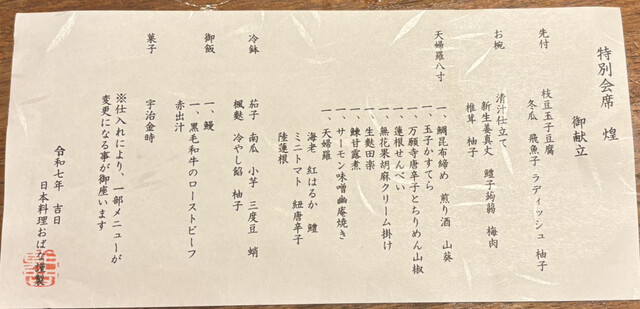 特別会席 煌
御献立
先付
枝豆玉子豆腐
冬瓜 飛魚子 ラディッシュ 柚子
お椀
清汁仕立て
新生姜真丈 鱧子蒟蒻 梅肉
椎茸 柚子
天婦羅八寸
一、鯛昆布締め 煎り酒 山葵
一、玉子かすてら
一、万願寺唐辛子とちりめん山椒
一、蓮根せんべい
一、無花果胡麻クリーム掛け
生麩田楽
一、鰊甘露煮
一、サーモン味噌幽庵焼き
一、天婦羅
海老 紅はるか 鱧
ミニトマト 紐唐辛子
陸蓮根
冷鉢
茄子 南瓜 小芋 三度豆 蛸
楓麩 冷やし餡 柚子
御飯
一、鰻
一、黒毛和牛のローストビーフ
赤出汁
菓子
宇治金時
※仕入れにより、一部メニューが
変更になる事が御座います
令和七年 吉日
日本料理おばな謹製